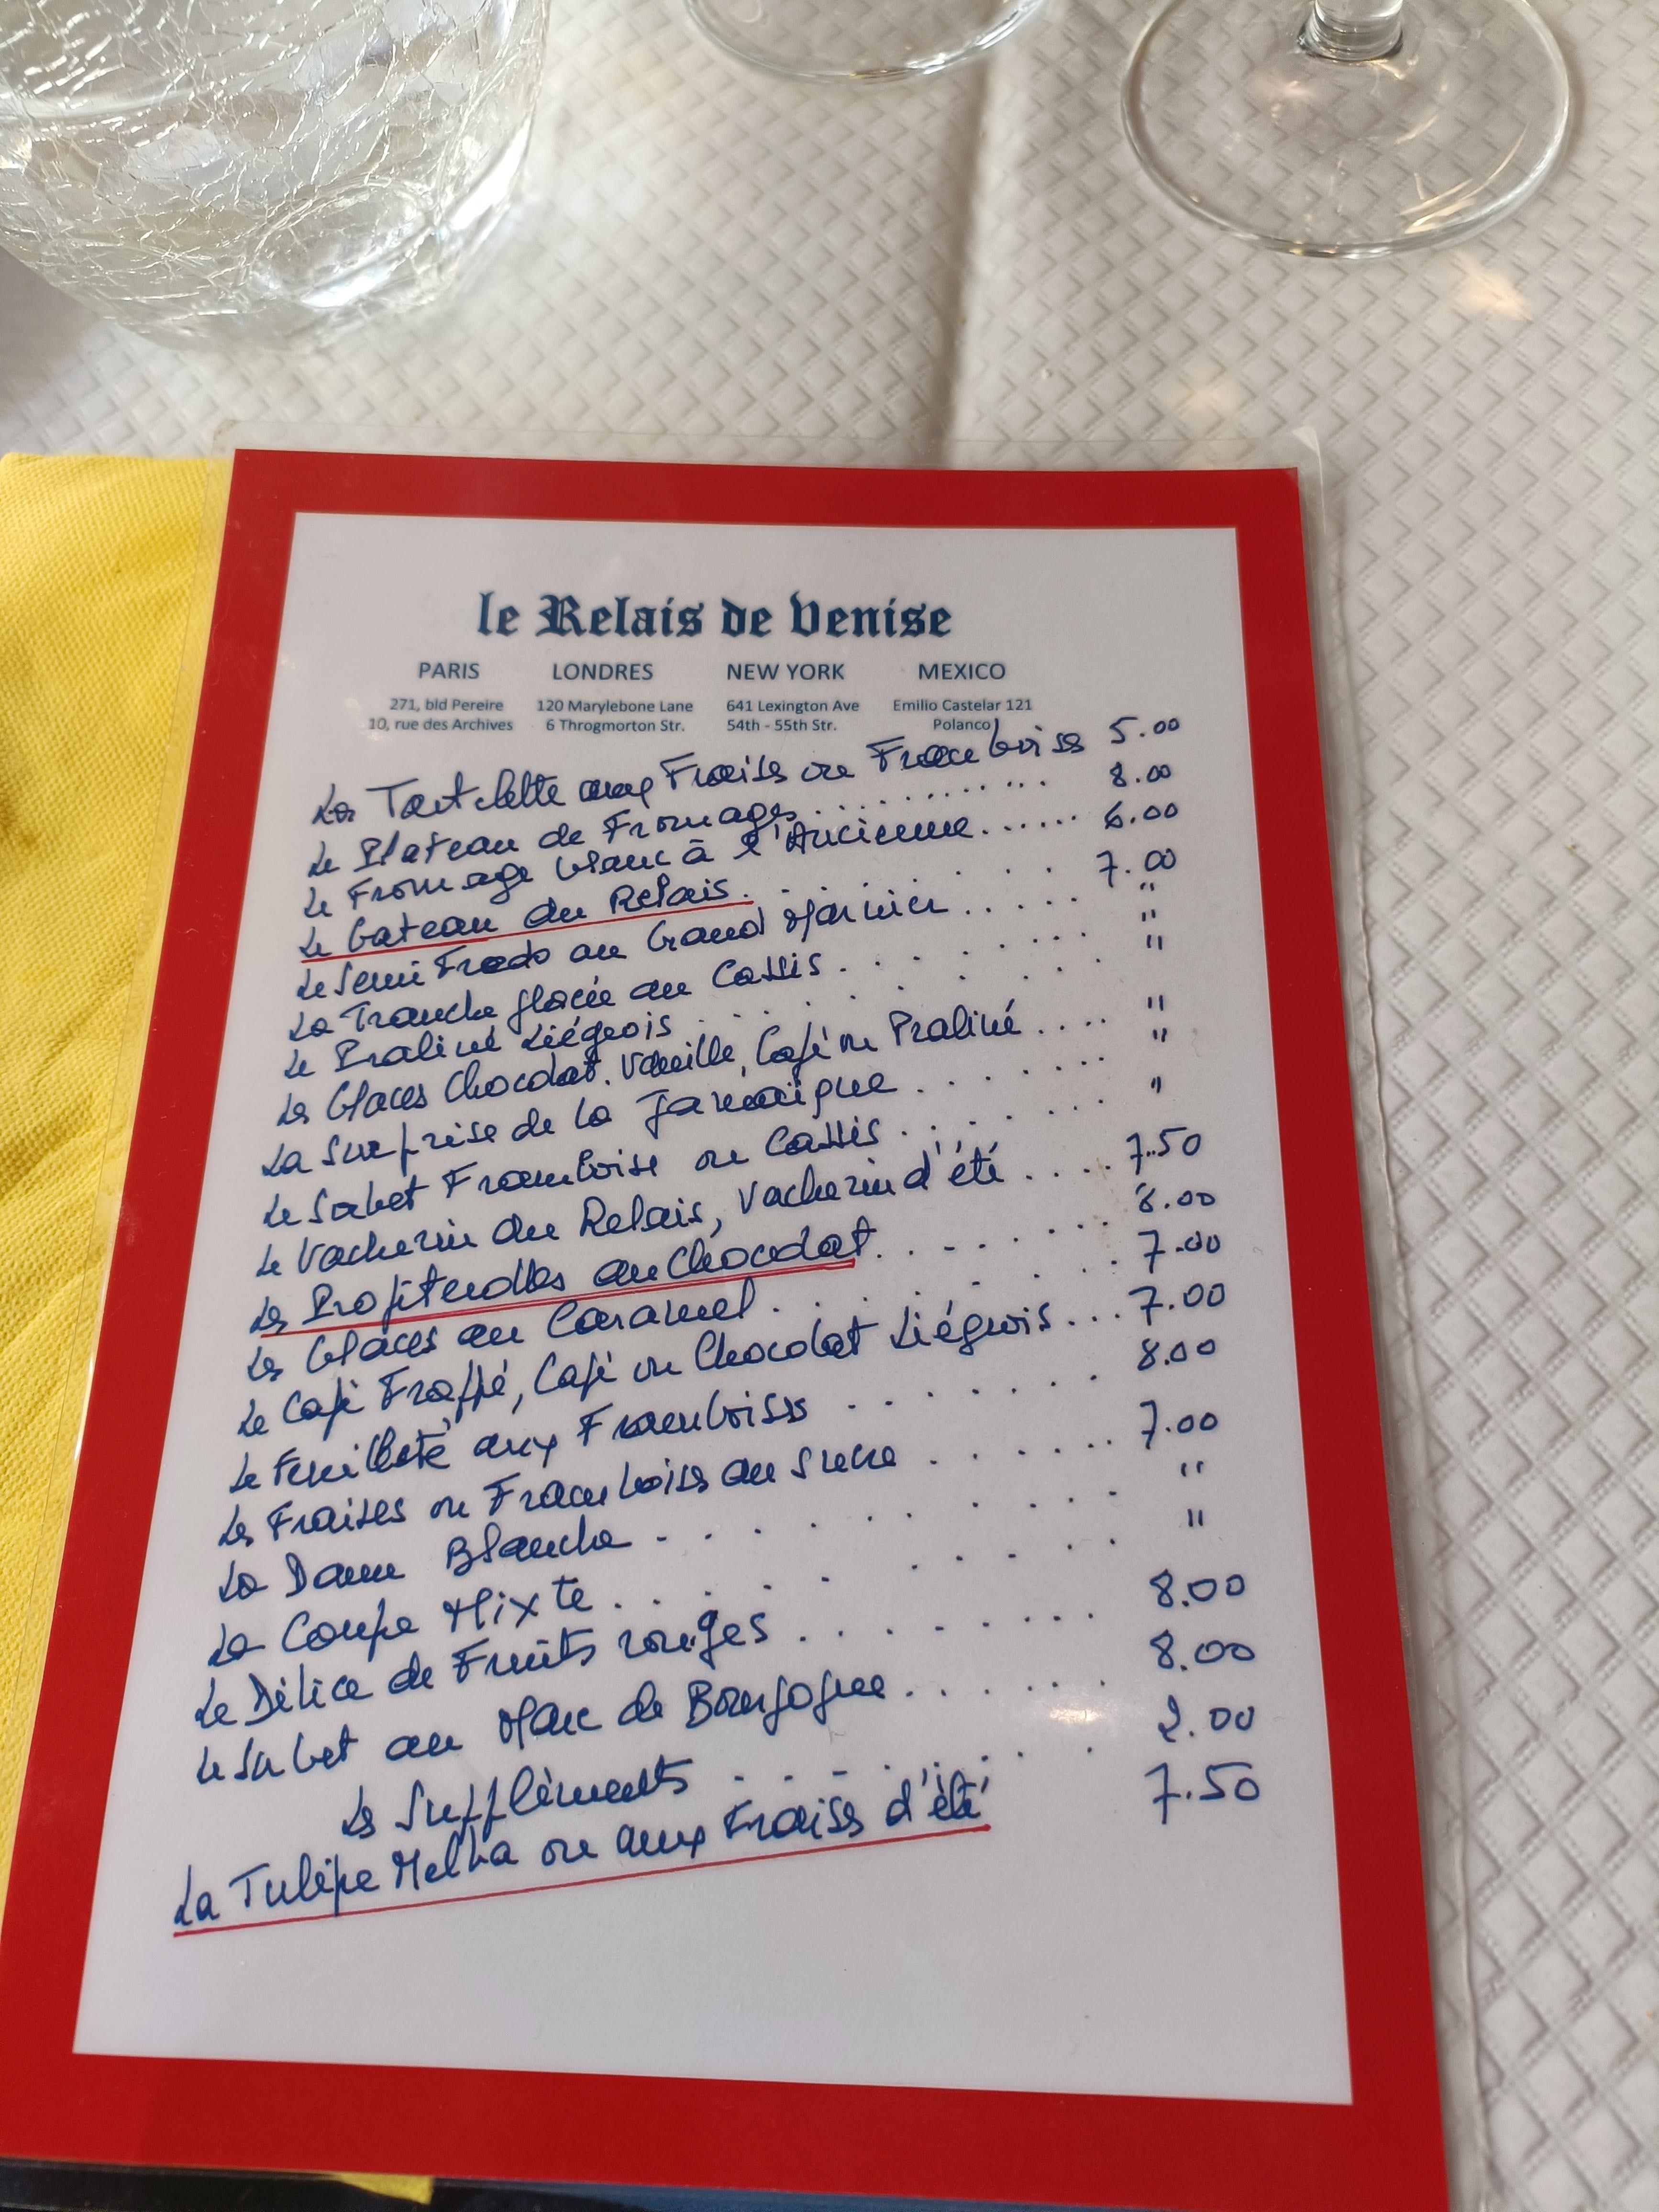 le Relais de Venise
PARIS LONDRES NEW YORK MEXICO
271, bld Pereire 120 Marylebone Lane 641 Lexington Ave Emilio Castelar 121
10, rue des Archives 6 Throgmorton Str. 54th - 55th Str. Polanco
Les Tartelette aux Fraises ou Framboises 5.00
Le Plateau de Fromages .......... 8.00
Le Fromage blanc à l'Ancienne ...... 6.00
Le Gateau du Relais. ........ 7.00
Le Semi Fredo au Grand Marnier ..... "
La Tranche glacée au Cassis ....... "
Le Praliné Liégeois ........ "
Les Glaces Chocolat, Vanille, Café ou Praliné .... "
La Surprise de la Jamaïque ....... "
Le Sorbet Framboise ou Cassis ....... "
Le Vacherin du Relais, Vacherin d'été .... 7.50
Les Profiterolles au Chocolat. ....... 8.00
Les Glaces au Caramel ........ 7.00
Le Café Frappé, Café ou Chocolat Liégeois ... 7.00
Le Feuilleté aux Framboises ....... 8.00
Les Fraises ou Framboises au Sucre ...... 7.00
La Dame Blanche ......... "
La Coupe Mixte ......... "
Le Délice de Fruits rouges ........ 8.00
Le Sorbet au Marc de Bourgogne ...... 8.00
Les Suppléments ........ 2.00
La Tulipe Melba ou aux Fraises d'été 7.50